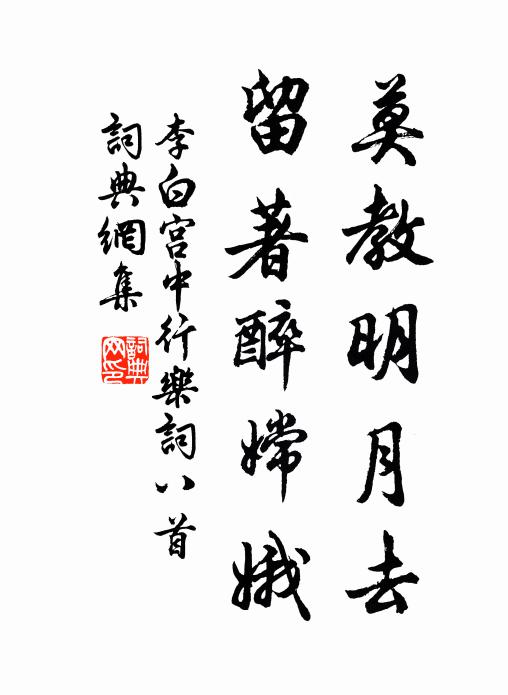 莫教明月去
留著醉嫦娥
李白宮中行樂詞八首
詞典網集
詞典網印